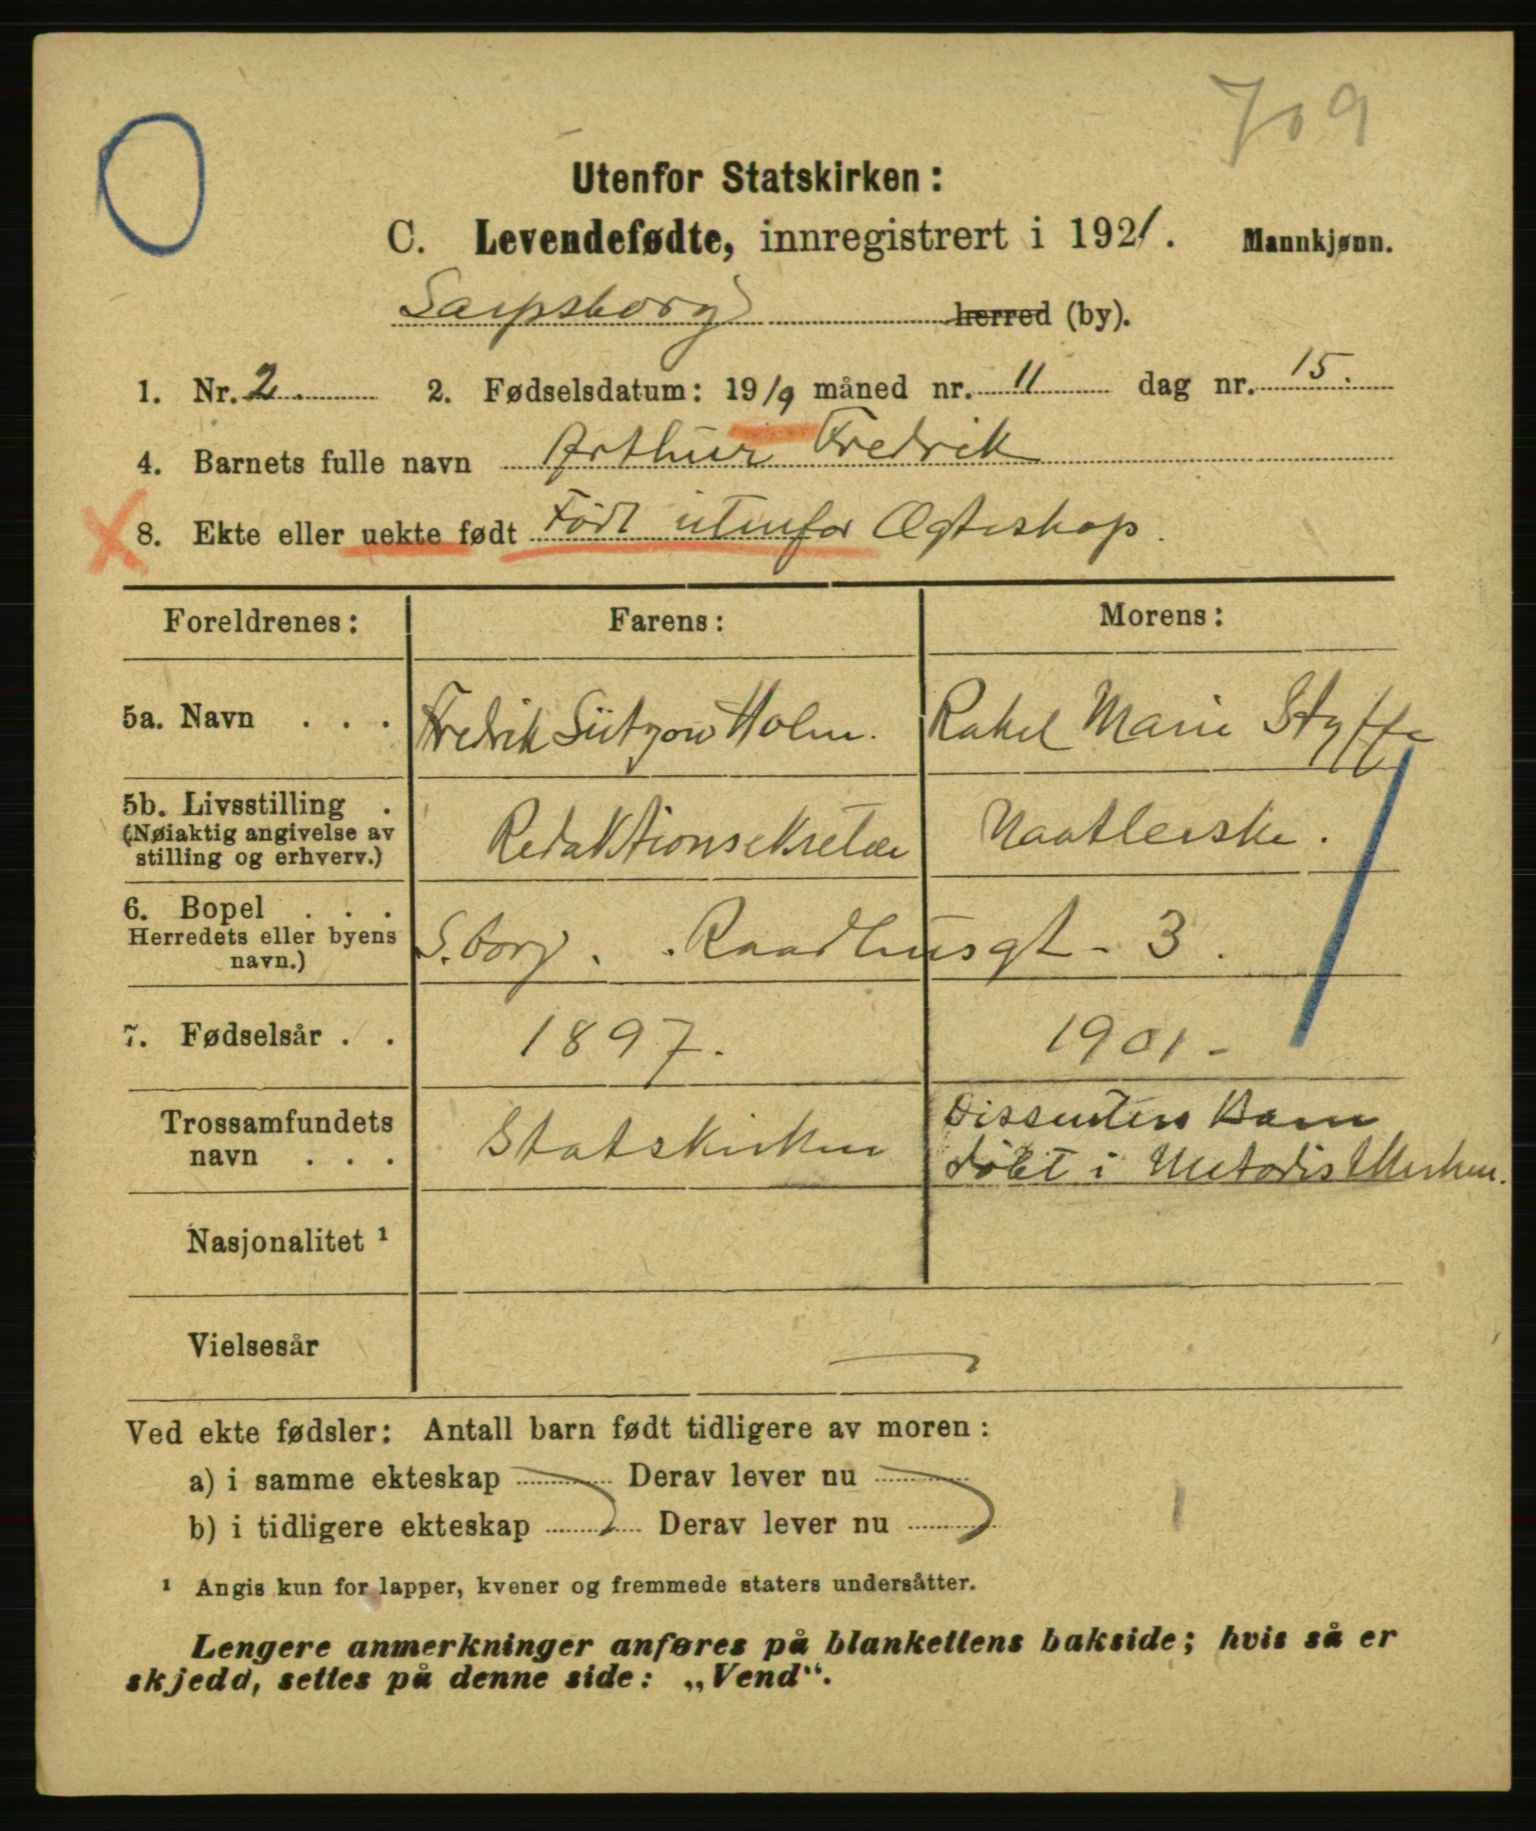 709
Utenfor Statskirken:
C. Levendefødte, innregistrert i 1921. Mannkjønn.
Sarpsborg herred (by).
1. Nr. 2. 2. Fødselsdatum: 1919 måned nr. 11 dag nr. 15.
4. Barnets fulle navn Arthur Fredrik
8. Ekte eller uekte født Födt utenfor Ægteskap.
Foreldrenes: Farens: Morens:
5a. Navn . . . Fredrik Lützow Holm. Rakel Marie Styffe
5b. Livsstilling .
(Nøiaktig angivelse av
stilling og erhverv.)
Redaktionsekretær Maatlerske.
6. Bopel . . .
Herredets eller byens
navn.)
S.borg. Raadhusgt - 3.
7. Fødselsår . . 1897. 1901 -
Trossamfundets
navn . . .
Statskirken Dissenters Barn
döbt i Metodistkirken.
Nasjonalitet ¹
Vielsesår
Ved ekte fødsler: Antall barn født tidligere av moren:
a) i samme ekteskap Derav lever nu
b) i tidligere ekteskap Derav lever nu
¹ Angis kun for lapper, kvener og fremmede staters undersåtter.
Lengere anmerkninger anføres på blankettens bakside; hvis så er
skjedd, settes på denne side: „Vend“.